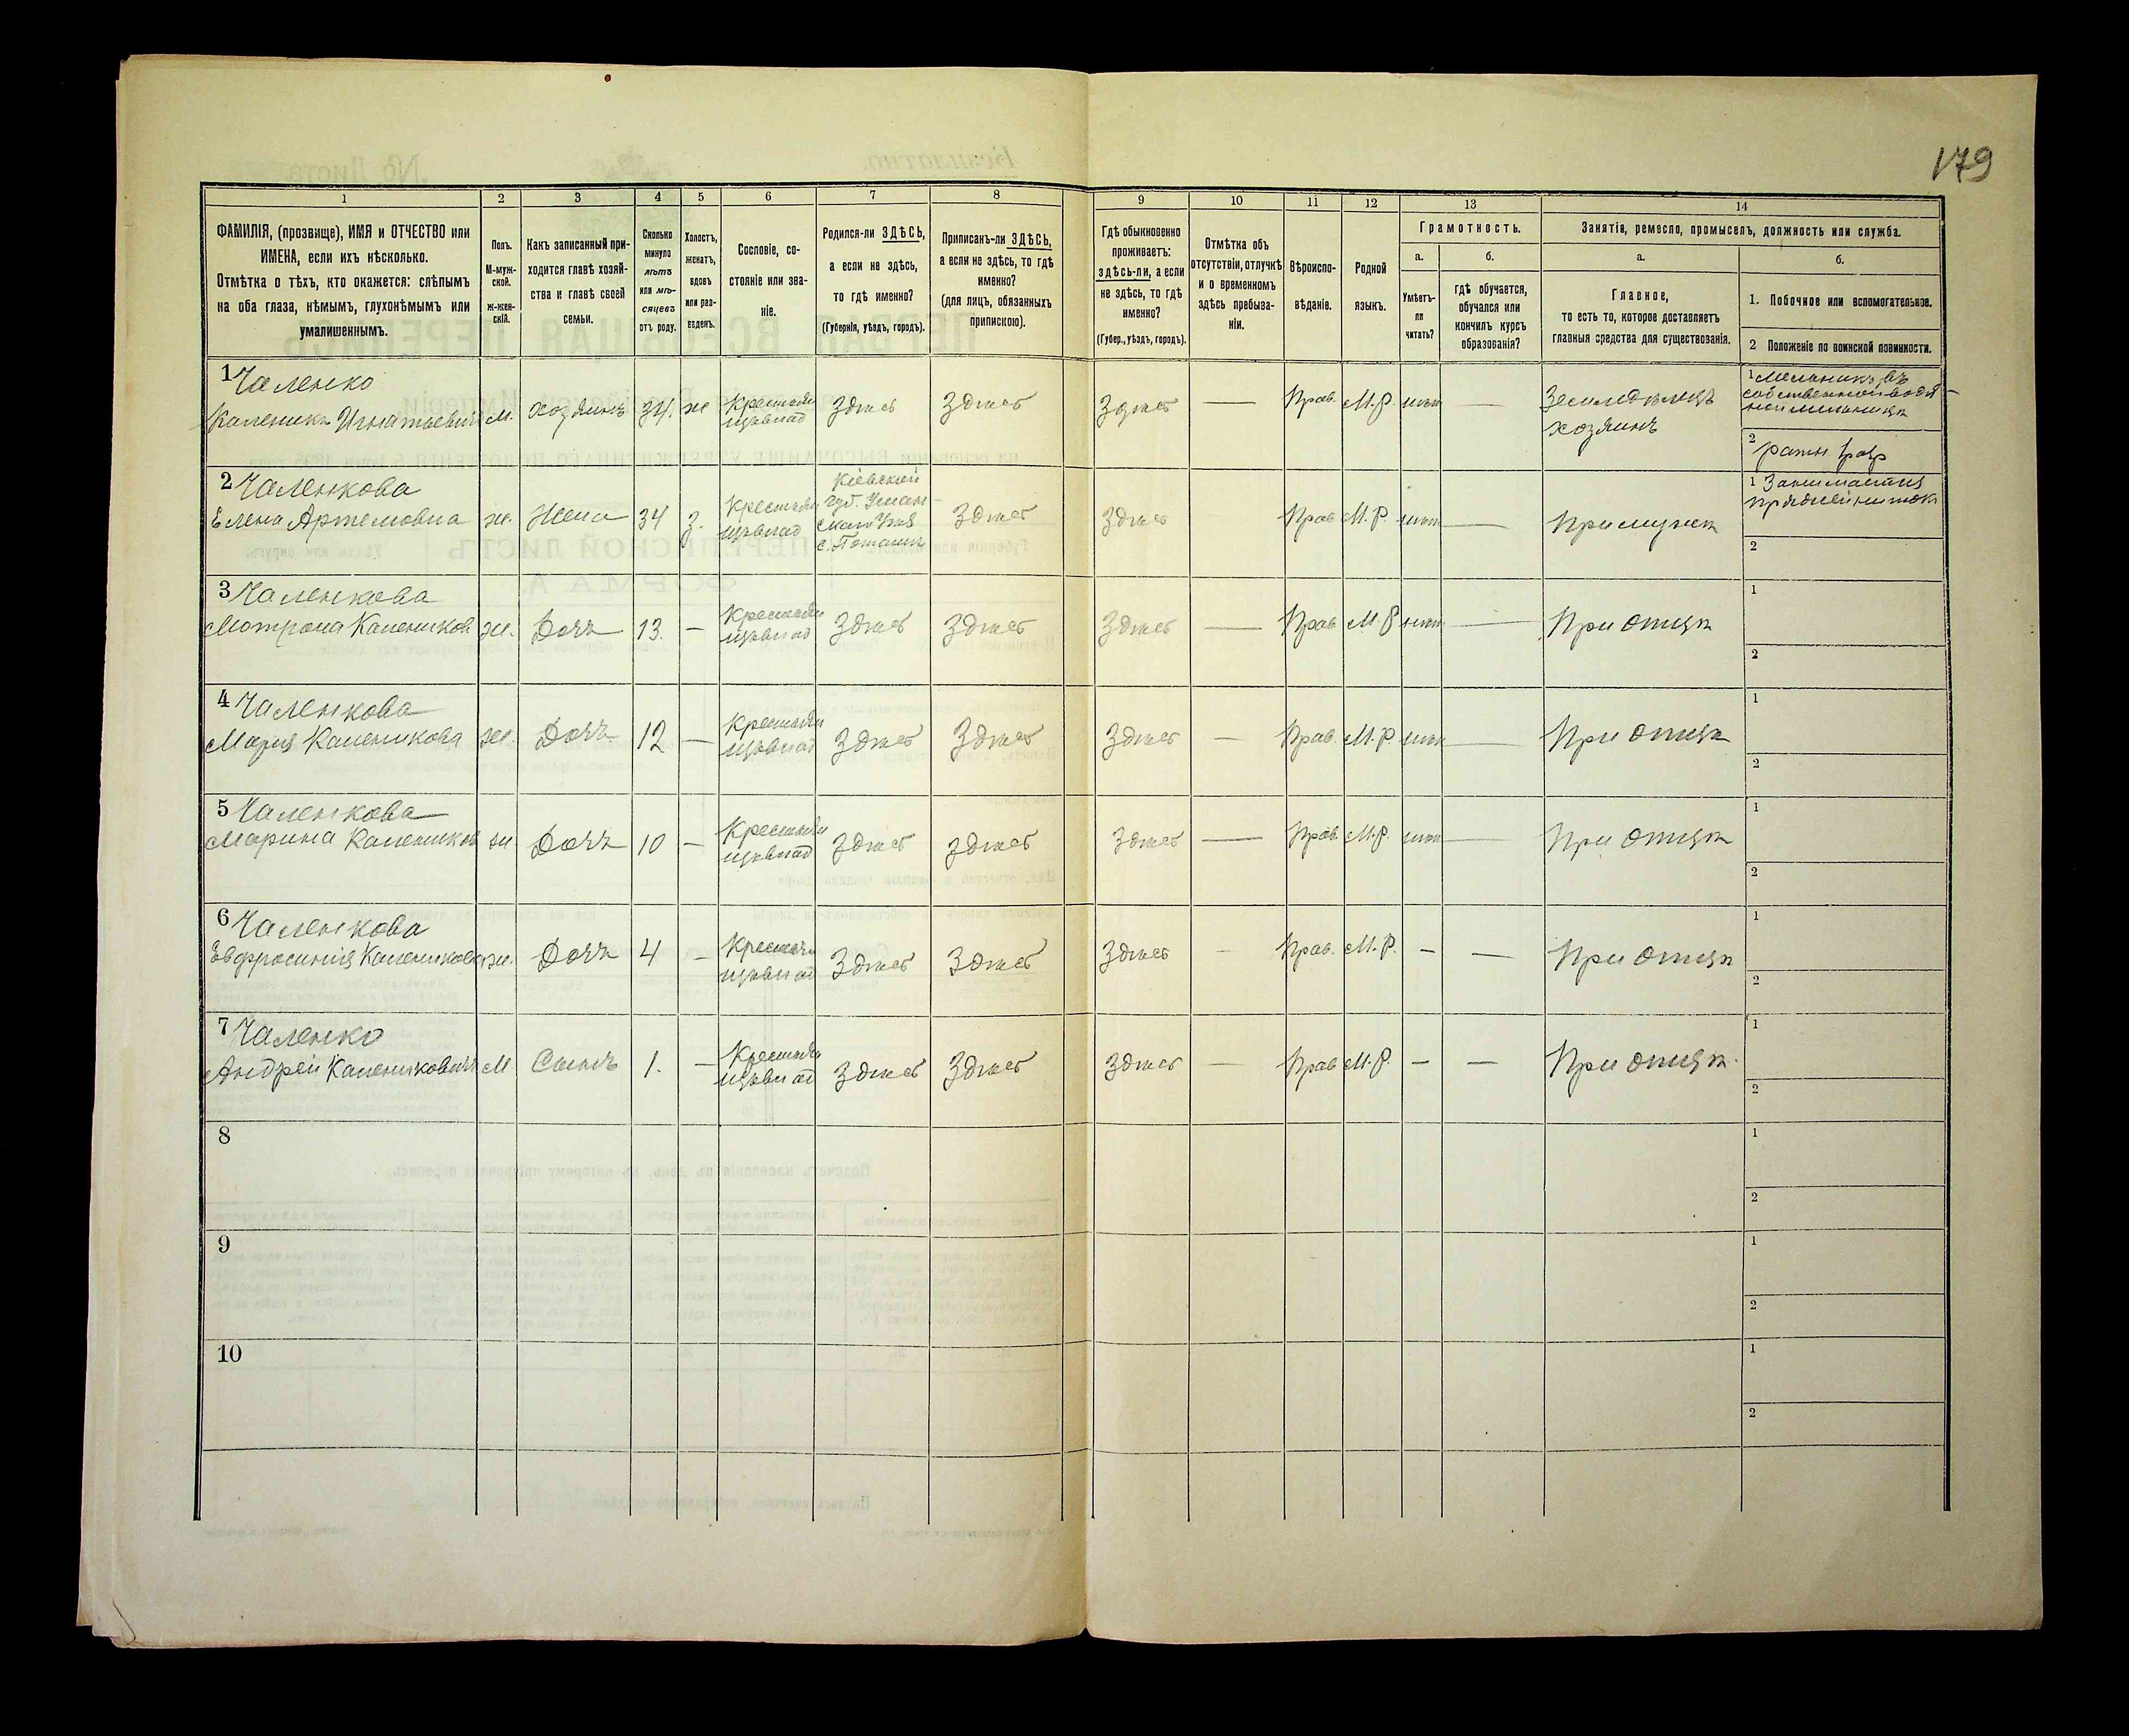 179
1 2 3 4 5 6 7 8 9 10 11 12 13 14
ФАМИЛІЯ, (прозвище), ИМЯ и ОТЧЕСТВО или ИМЕНА, если ихъ нѣсколько.
Отмѣтка о тѣхъ, кто окажется: слѣпымъ на оба глаза, нѣмымъ, глухонѣмымъ или умалишеннымъ.
Полъ. М-мужской. ж-женскій.
Какъ записанный приходится главѣ хозяйства и главѣ своей семьи.
Сколько минуло лѣтъ или мѣсяцевъ отъ роду.
Холостъ, женатъ, вдовъ или разведенъ.
Сословіе, состояніе или званіе.
Родился-ли ЗДѢСЬ, а если не здѣсь, то гдѣ именно?
(Губернія, уѣздъ, городъ).
Приписанъ-ли ЗДѢСЬ, а если не здѣсь, то гдѣ именно?
(для лицъ, обязанныхъ припискою).
Гдѣ обыкновенно проживаетъ: здѣсь-ли, а если не здѣсь, то гдѣ именно?
(Губер., уѣздъ, городъ).
Отмѣтка объ отсутствіи, отлучкѣ и о временномъ здѣсь пребываніи.
Вѣроисповѣданіе.
Родной языкъ.
Грамотность.
а. Умѣетъ-ли читать?
б. гдѣ обучается, обучался или кончилъ курсъ образованія?
Занятіе, ремесло, промыселъ, должность или служба.
а. Главное, то есть то, которое доставляетъ главныя средства для существованія.
б.
1. Побочное или вспомогательное.
2 Положеніе по воинской повинности.
1 Чаленко
Каленикъ Игнатьевич м. хозяинъ 34. ж здѣсь здѣсь здѣсь — Прав. М.Р. нѣт — Земледѣлецъ
хозяинъ
1 Мельникъ въ
собственной водя-
ной мельницѣ
2 ратн
2 Чаленкова
Елена Артемовна ж. Жена 34 з. здѣсь здѣсь Прав М.Р. нѣт — При мужѣ
Кіевской
губ. Уман-
скаго Уѣз
1 Занимается
пряжей нитокъ
2
3 Чаленкова
Мотрона Калеников ж. Дочь 13. — здѣсь здѣсь здѣсь — Прав М.Р нѣт — При отцѣ
1
2
4 Чаленкова
Мария Каленикова ж. Дочь 12 — здѣсь здѣсь здѣсь — Прав. М.Р. нѣт — При отцѣ
1
2
5 Чаленкова
Марина Калеников ж Дочь 10 — здѣсь здѣсь здѣсь — Прав. М.Р. нѣт — При отцѣ
1
2
6 Чаленкова
Евфросинія Каленикова ж. Дочь 4 — здѣсь здѣсь здѣсь — Прав. М.Р. — — При отцѣ
1
2
7 Чаленко
Андрей Каленикович М Сынъ 1. — здѣсь здѣсь здѣсь — Прав М.Р. — — При отцѣ.
1
2
8
1
2
9
1
2
10
1
2